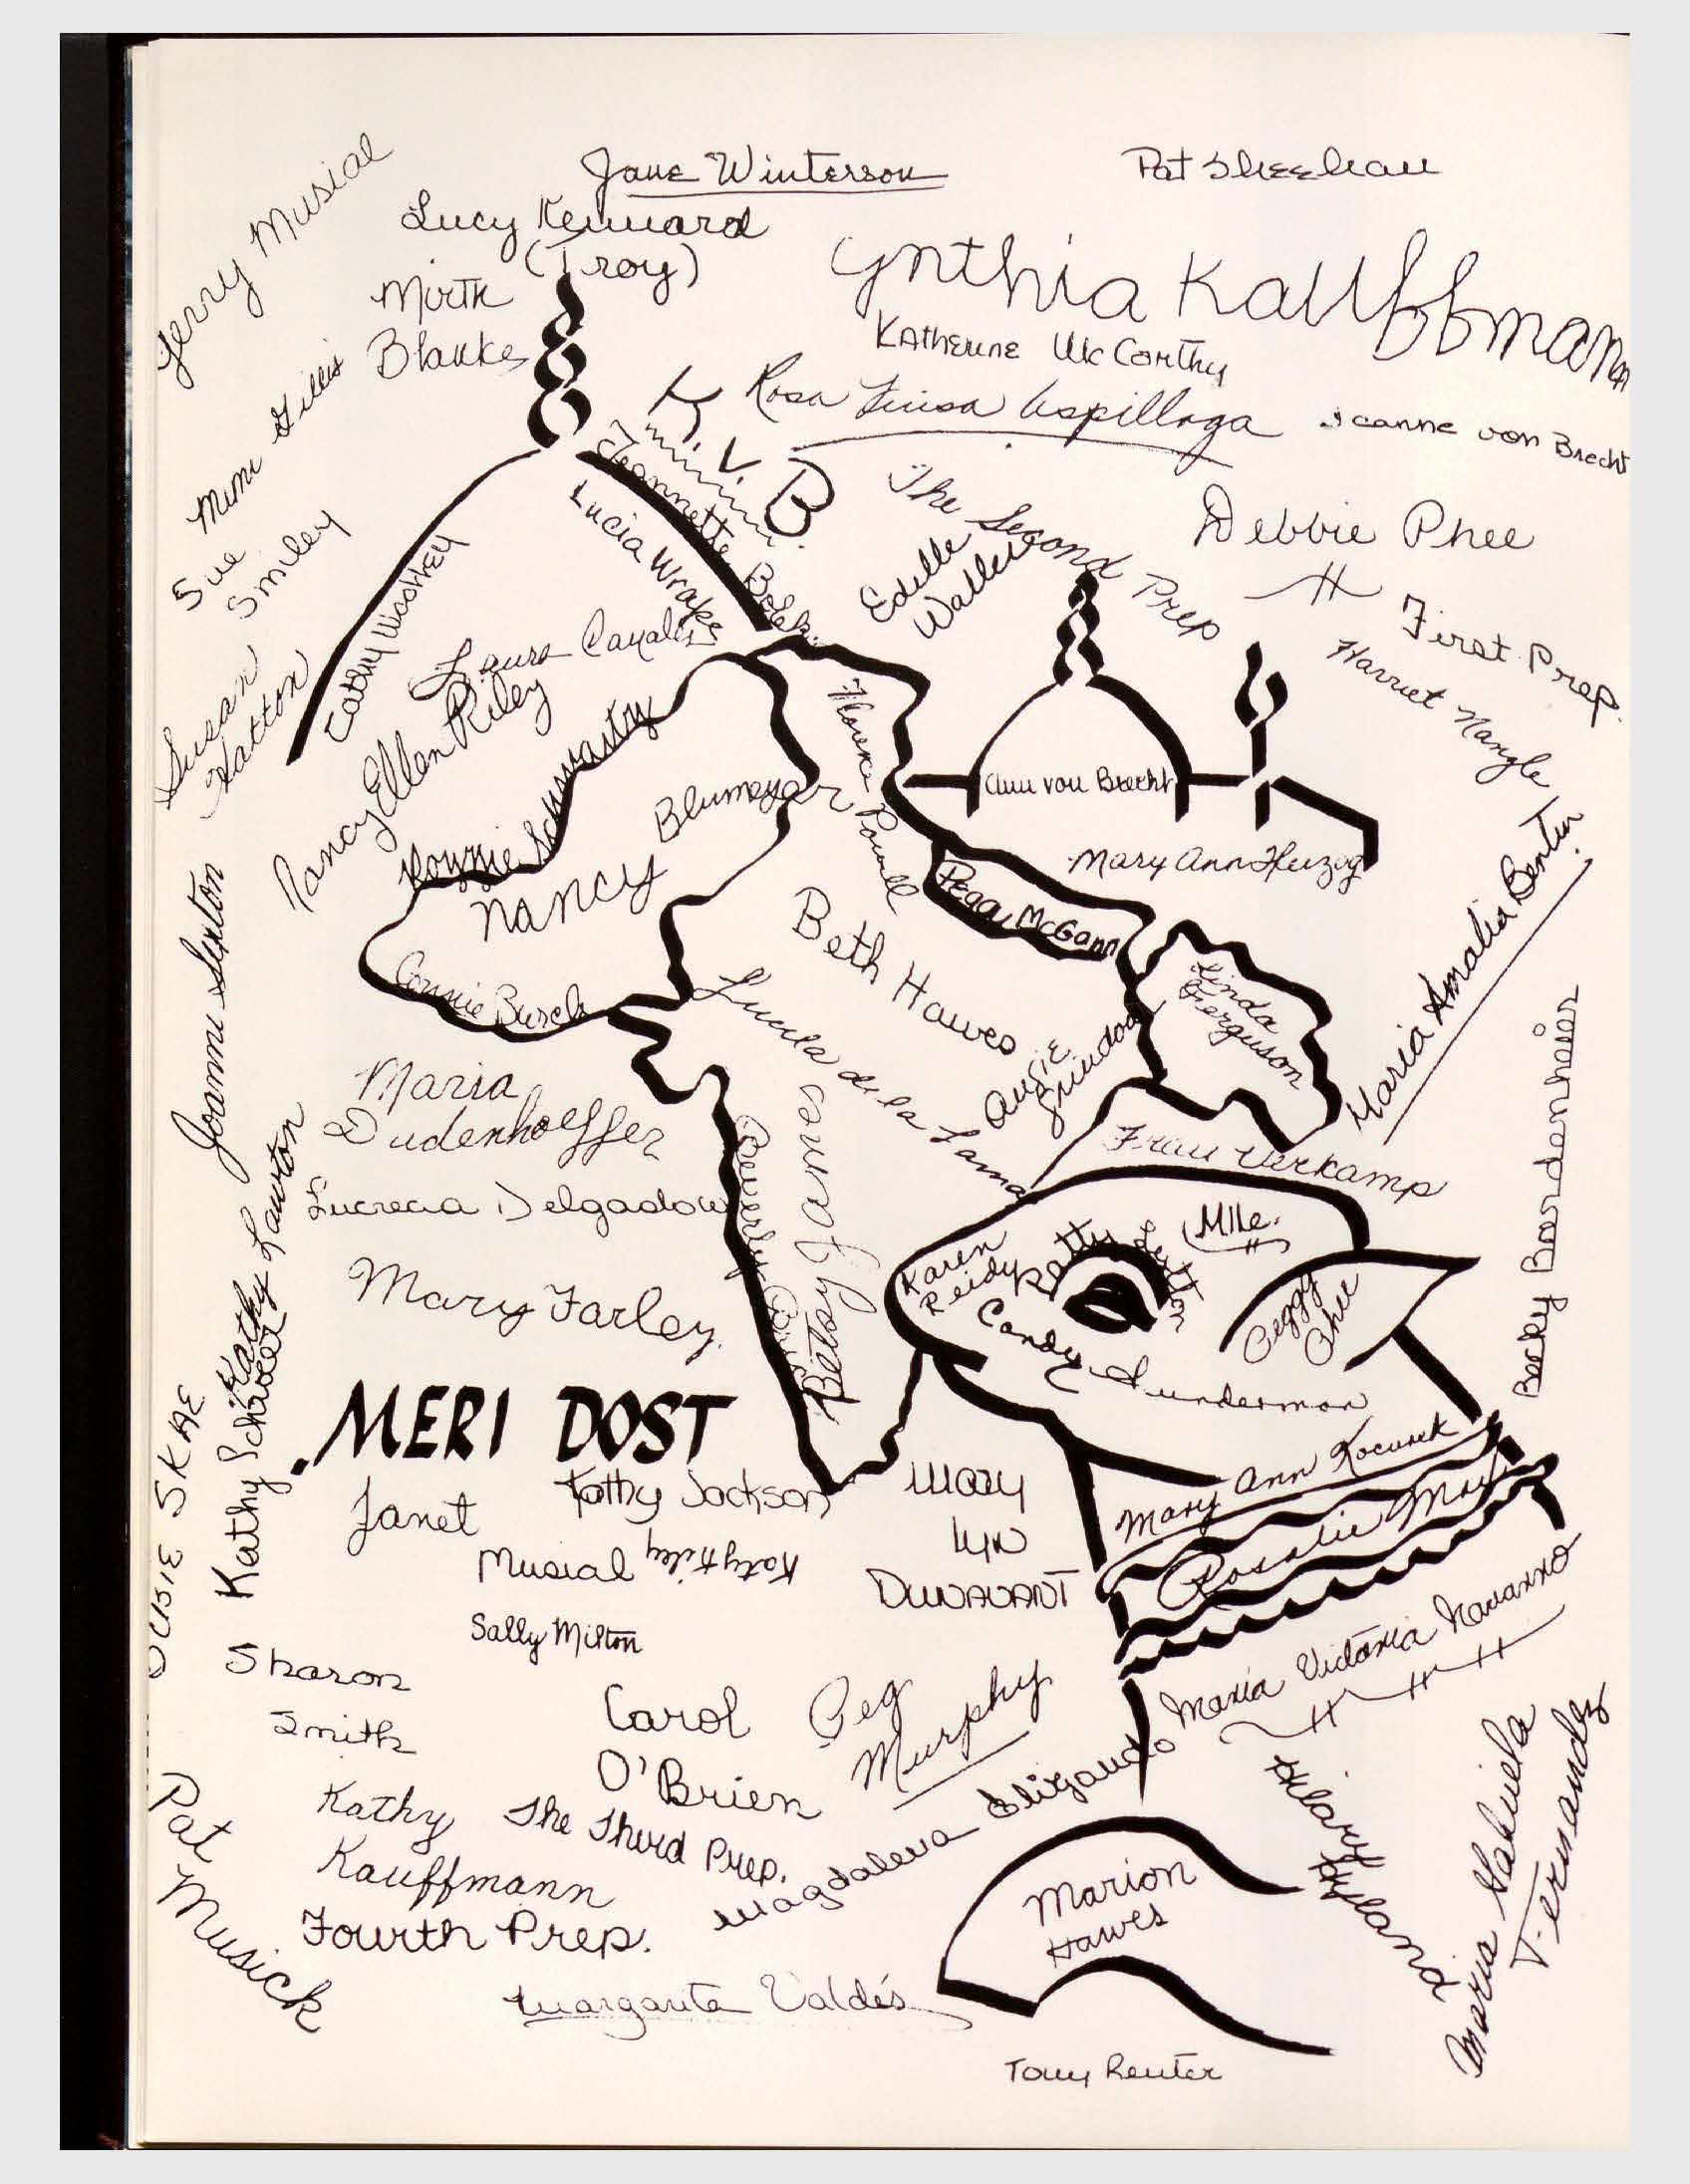 Jane Winterson
Pat Sheehan
Jerry Musial
Lucy Kennard
(Troy)
Cynthia Kauffmann
Mirth
Blankes
Katherine McCarthy
Mimi Gillis
K.V.B
Rosa Luisa Aspillaga
Jeanne von Brecht
Jeannette
Lucia Wrape
The Second Prep
Edille
Waller
Debbie Phee
First Prep.
Sue
Smiley
Cathy
Laura Canales
Harriet Nangle
Susan
Hatton
Nancy Ellen Riley
Florence Powell
Ann von Brecht
Ronnie
Nancy Blumeyer
Mary Ann Herzog
Peggy McGann
Maria Amalia
Beth Hawes
Connie Busch
Linda
Ferguson
Joann Sexton
Lucila de la Lama
Angie
Grindon
Maria
Dudenhoeffer
Frau Verkamp
Becky Bordenheier
Lucrecia Delgado
Beverly
Betsy James
Mlle.
Karen
Reidy
Patty
Peggy
Phee
Candy Gunderman
Kathy Lawton
Mary Farley
Kathy
MERI DOST
Susie Skae
Janet
Musial
Kathy Jackson
Katy Riley
Mary
Lyn
Dunavant
Mary Ann Kocurek
Rosalie
Sally Milton
Sharon
Smith
Carol
O'Brien
Peg
Murphy
Maria Victoria Navarro
Magdalena Elizondo
Hilary
Hyland
Maria Gabriela
Fernandez
Pat
Musick
Kathy
Kauffmann
The Third Prep.
Fourth Prep.
Marion
Hawes
Margarita Valdés
Tony Reuter